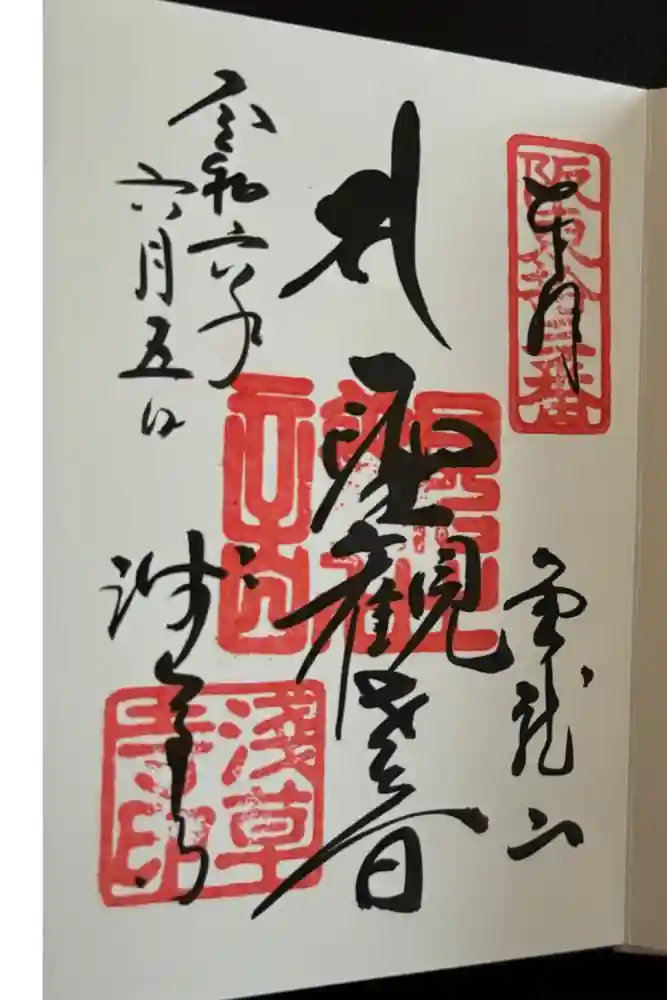 阪東拾三番
奉拝
金龍山
聖観世音
令和六年
六月五日
浅草寺
淺草
寺印